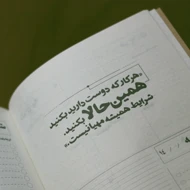 «هر کار که دوست دارید بکنید
همین حالا بکنید.
شرایط همیشه مهیا نیست.»